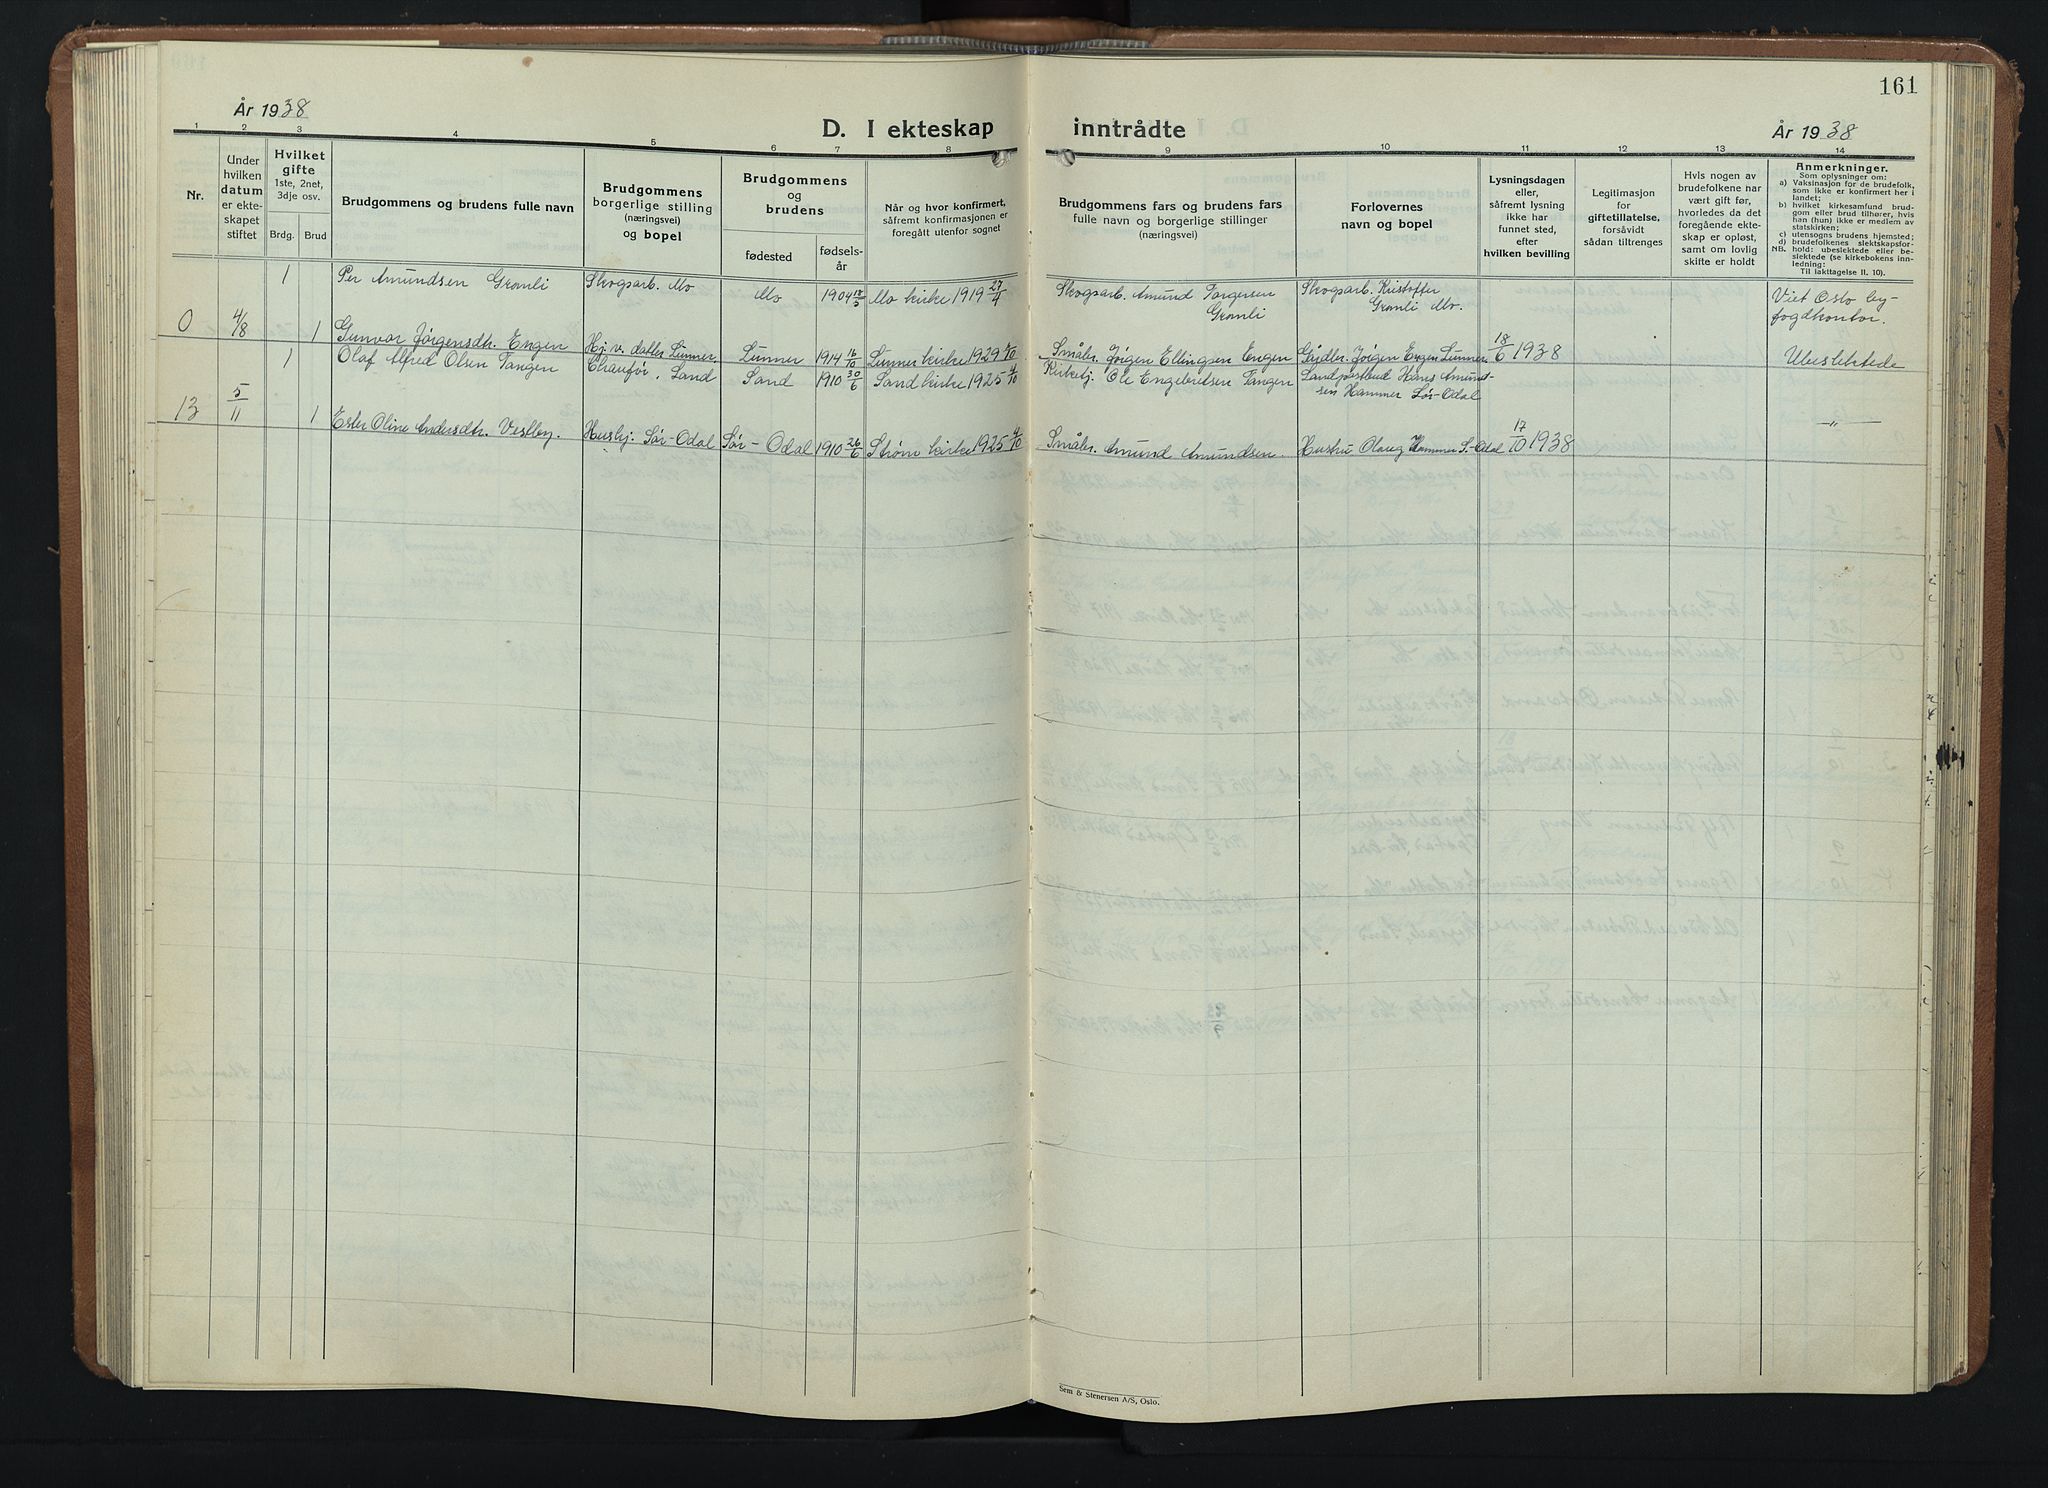 161
År 1938
D. I ekteskap inntrådte
År 1938
1 2 3 4 5 6 7 8 9 10 11 12 13 14
Nr.
Under
hvilken
datum
er ekte-
skapet
stiftet
Hvilket
gifte
1ste, 2net,
3dje osv.
Brdg. Brud
Brudgommens og brudens fulle navn
Brudgommens
borgerlige stilling
(næringsvei)
og bopel
Brudgommens
og
brudens
fødested
fødsels-
år
Når og hvor konfirmert,
såfremt konfirmasjonen er
foregått utenfor sognet
Brudgommens fars og brudens fars
fulle navn og borgerlige stillinger
(næringsvei)
Forlovernes
navn og bopel
Lysningsdagen
eller,
såfremt lysning
ikke har
funnet sted,
efter
hvilken bevilling
Legitimasjon
for
giftetillatelse,
forsåvidt
sådan tiltrenges
Hvis nogen av
brudefolkene har
vært gift før,
hvorledes da det
foregående ekte-
skap er opløst,
samt om lovlig
skifte er holdt
Anmerkninger.
Som oplysninger om:
a) Vaksinasjon for de brudefolk,
som ikke er konfirmert her i
landet;
b) hvilket kirkesamfund brud-
gom eller brud tilhører, hvis
han (hun) ikke er medlem av
statskirken;
c) utensogns brudens hjemsted;
d) brudefolkenes slektskapsfor-
NB. hold: ubeslektede eller be-
slektede (se kirkebokens inn-
ledning:
Til iakttagelse II. 10).
1 Per Amundsen Grønli Skogsarb. Mo Mo 1904 18/5 Mo kirke 1919 27/4 Skogsarb. Amund Torgersen Grønli Skogsarb. Kristoffer Grønli Mo. Viet Oslo by-
fogdkontor.
0 4/8 1 Gunvor Jørgensdtr. Engen Hj. v. datter Lunner Lunner 1914 16/10 Lunner kirke 1929 Småbr. Jørgen Ellingsen Engen Gårdbr. Jørgen Engen Lunner 18/6 1938 Ubeslektede
1 Olaf Alfred Olsen Tangen Chaufør, Sand Sand 1910 30/6 Sand kirke 1925 4/10 Kirketj. Ole Engebretsen Tangen Landpostbud Hans Amund-
sen Hammer Sør-Odal
13 5/11 1 Ester Oline Andersdtr. Vestby. Hushj. Sør-Odal Sør-Odal 1910 26/6 Strøm kirke 1925 4/10 Småbr. Amund Amundsen. Hustru Olaug Hammer S.-Odal 17/10 1938 —"—
Sem & Stenersen A/S, Oslo.